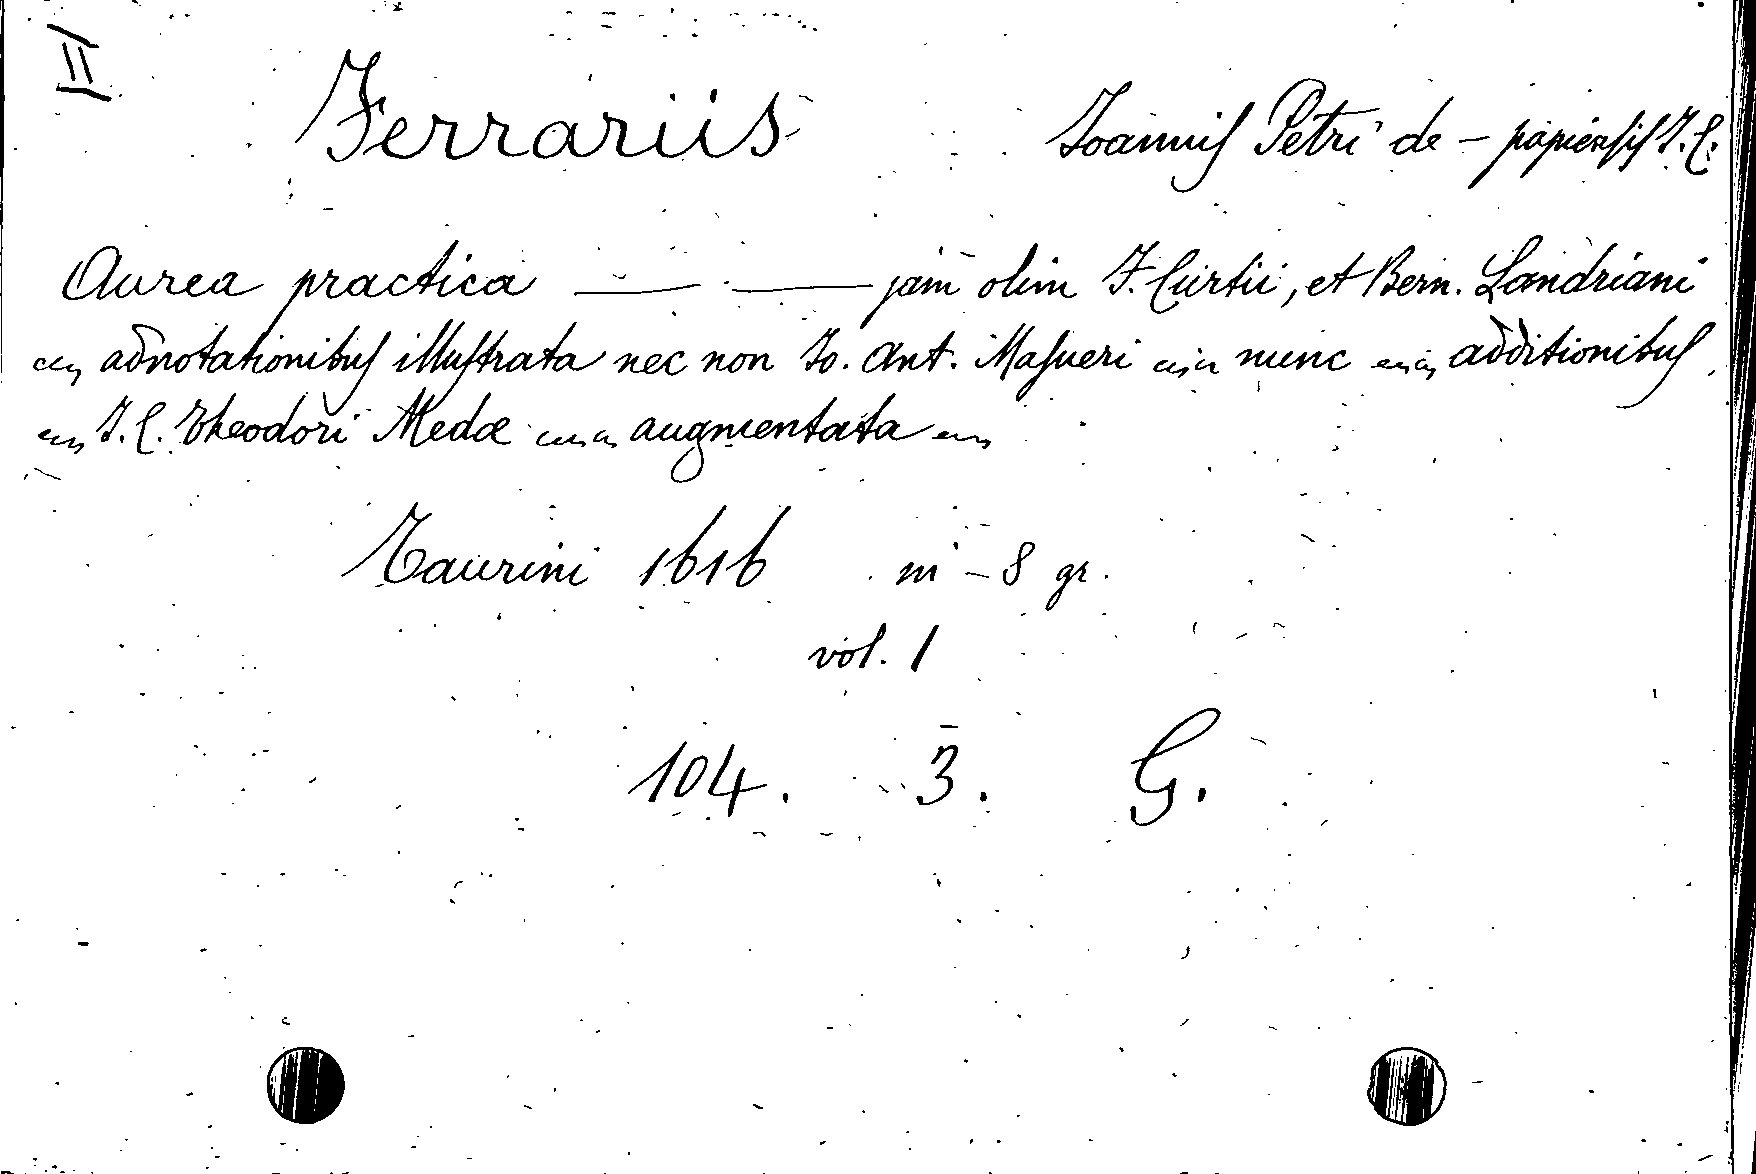 II
Ferrariis Joannis Petri de - papiensis J. C.
Aurea practica —— —— jam olim J. Curtii, et Bern. Landriani
adnotationibus illustrata nec non Jo. Ant. Masueri nunc additionibus
J. C. Theodori Medæ augmentata
Taurini 1616 in - 8 gr.
vol. 1
104. 3. G.